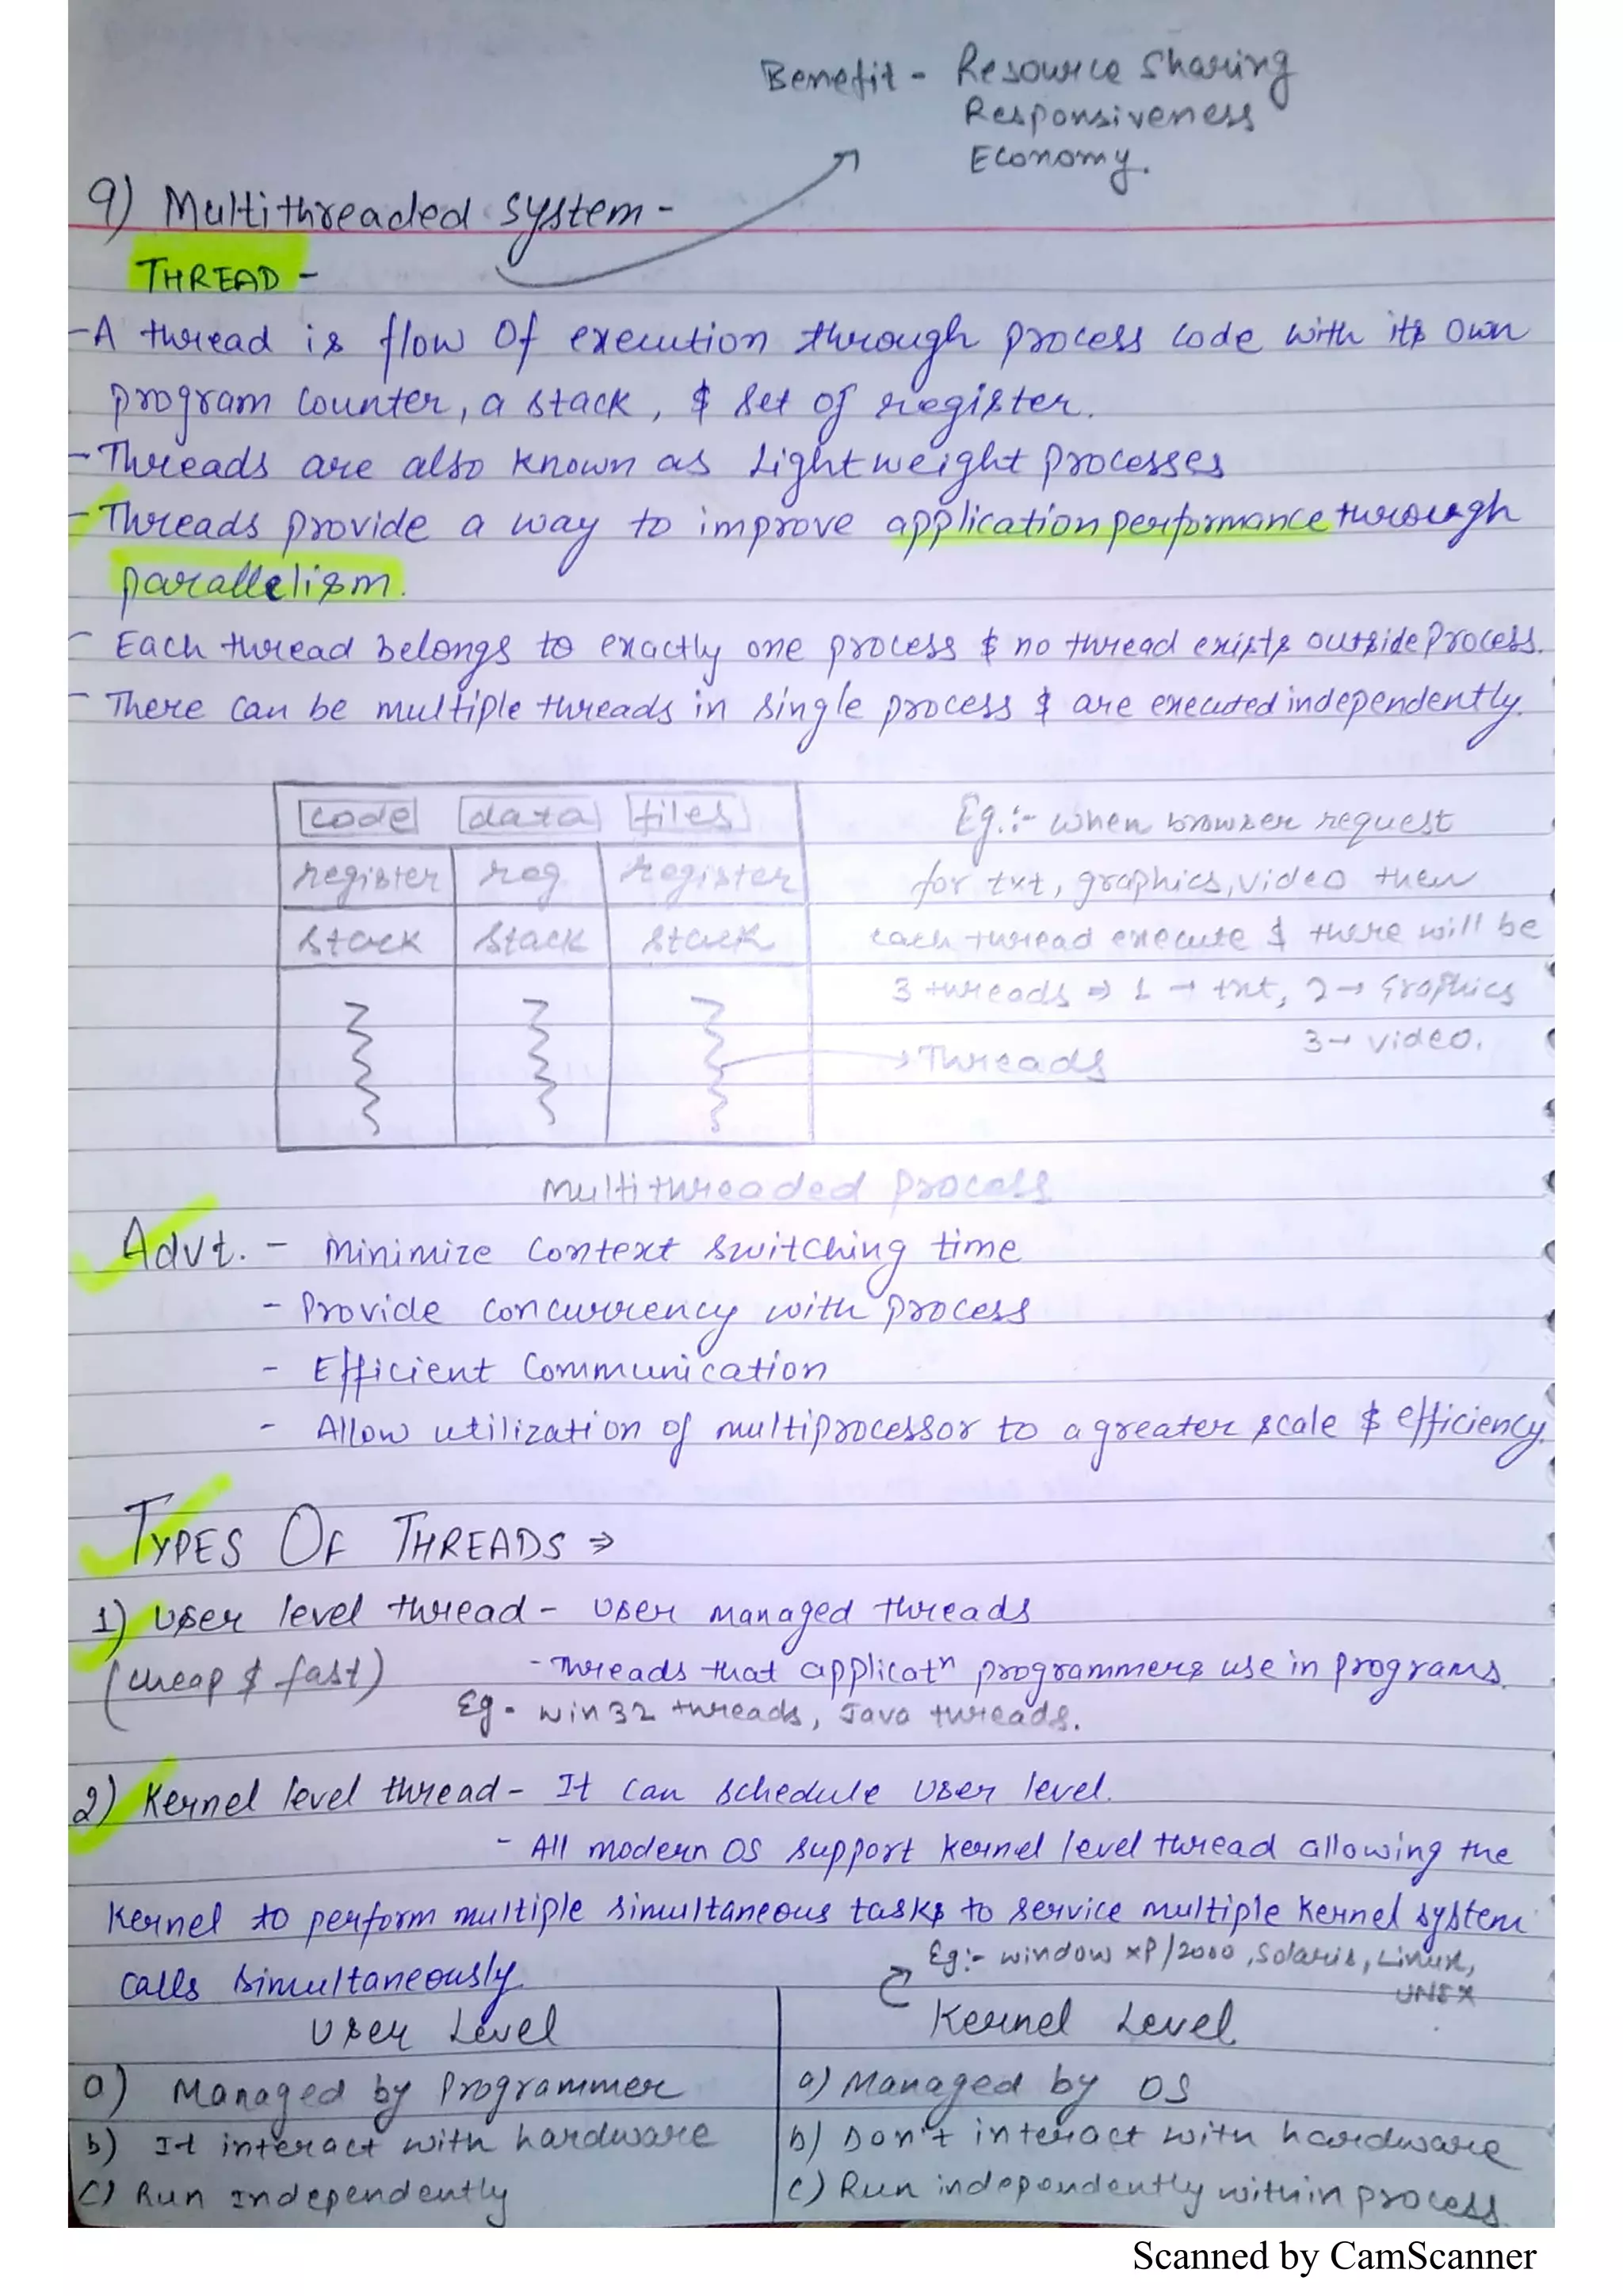 Benefit - Resource Sharing
Responsiveness
Economy.
9) Multithreaded system -
THREAD -
- A thread is flow of execution through process code with its own
program counter, a stack, & set of register.
- Threads are also known as Lightweight processes
- Threads provide a way to improve application performance through
parallelism.
- Each thread belongs to exactly one process & no thread exists outside Process.
- There can be multiple threads in single process & are executed independently.
code data files
register reg register
stack stack stack
Eg.:- when browser request
for txt, graphics, video then
each thread execute & there will be
3 threads ⇒ 1 → txt, 2 → Graphics
3 → video.
→ Threads
Multithreaded process
Advt. - Minimize context switching time
- Provide concurrency with process
- Efficient Communication
- Allow utilization of multiprocessor to a greater scale & efficiency.
TYPES OF THREADS ⇒
1) User level thread - User managed threads
(cheap & fast) - Threads that applicatn programmers use in programs.
Eg - win32 threads, Java threads.
2) Kernel level thread - It can schedule User level.
- All modern OS support Kernel level thread allowing the
Kernel to perform multiple simultaneous tasks to service multiple kernel system
calls simultaneously.
Eg:- window XP/2000, Solaris, Linux,
UNIX
User Level Kernel Level
a) Managed by Programmer a) Managed by OS
b) It interact with hardware b) Don't interact with hardware
c) Run Independently c) Run independently within process.
Scanned by CamScanner